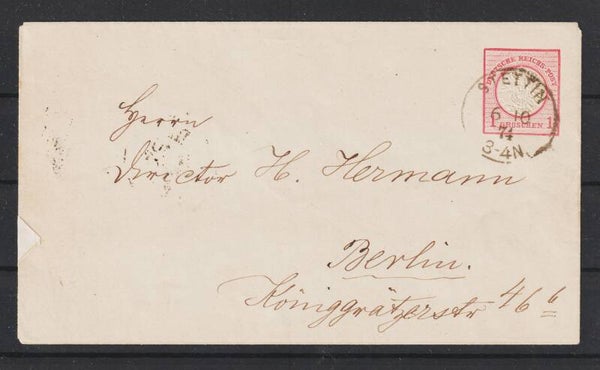 DEUTSCHE REICHS-POST
1 GROSCHEN 1
STETTIN
6 10
74
3-4N
Herrn
Director H. Hermann
Berlin.
Königgrätzerstr 46 b